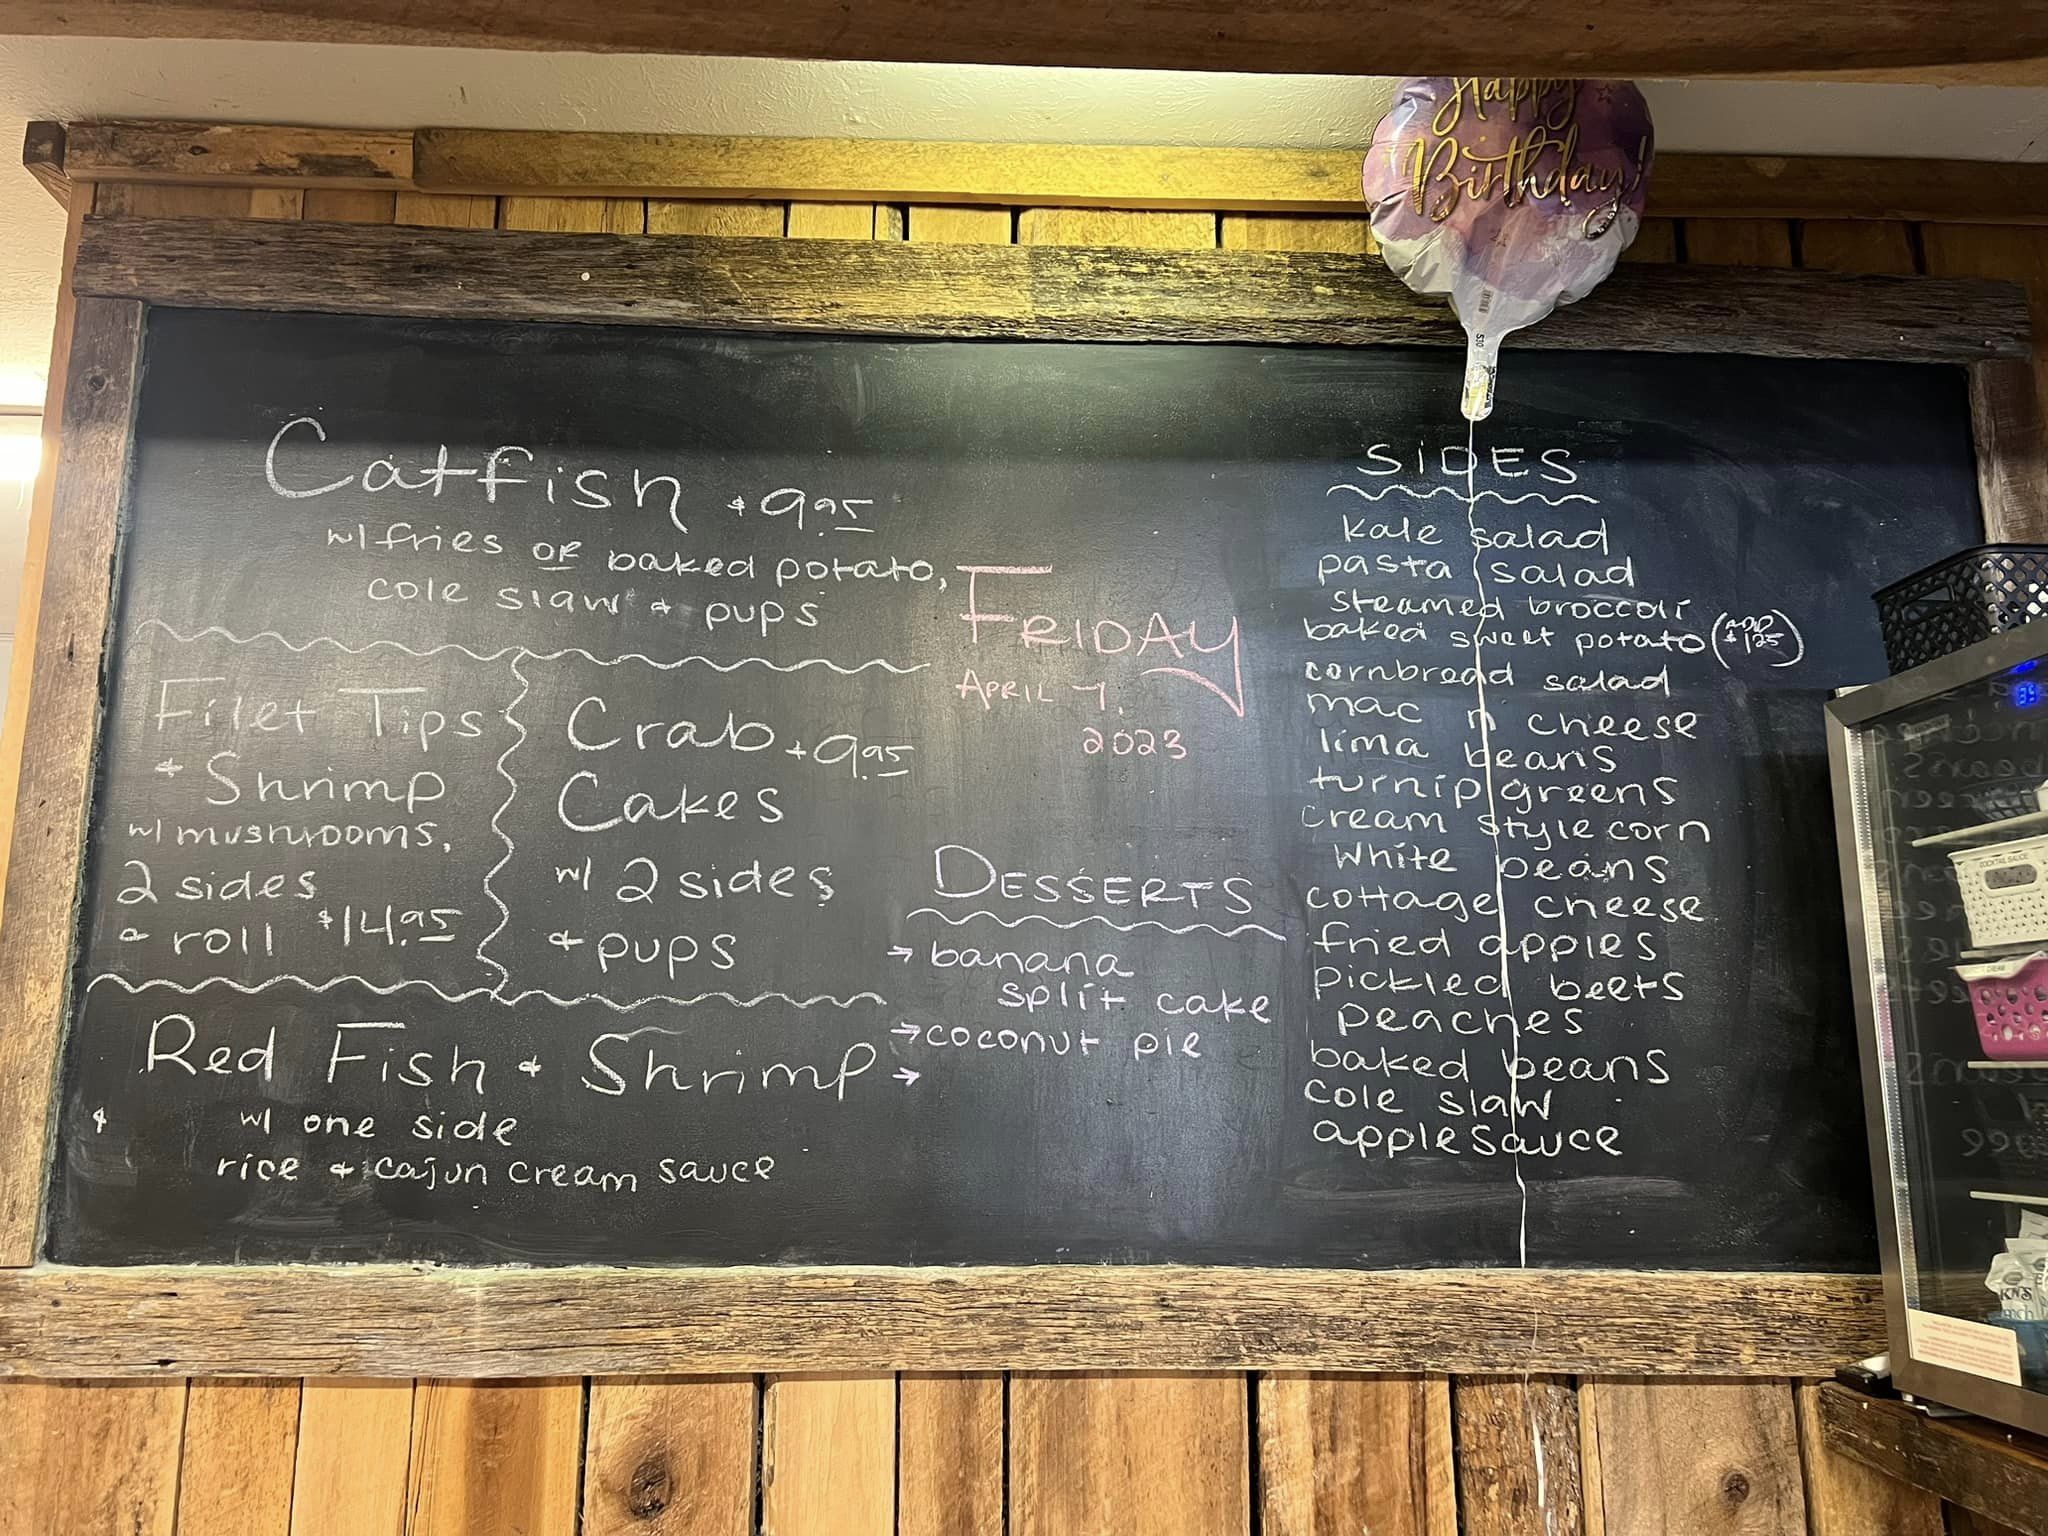 Happy
Birthday!
Catfish $9.95
w/ fries OR baked potato,
cole slaw & pups
Filet Tips
& Shrimp
w/ mushrooms,
2 sides
& roll $14.95
Crab $9.95
Cakes
w/ 2 sides
& pups
Red Fish & Shrimp
w/ one side
rice & cajun cream sauce
FRIDAY
APRIL 7,
2023
DESSERTS
→ banana
split cake
→ coconut pie
→
SIDES
kale salad
pasta salad
steamed broccoli
baked sweet potato (ADD $1.25)
cornbread salad
mac n cheese
lima beans
turnip greens
cream style corn
white beans
cottage cheese
fried apples
pickled beets
peaches
baked beans
cole slaw
applesauce
COCKTAIL SAUCE